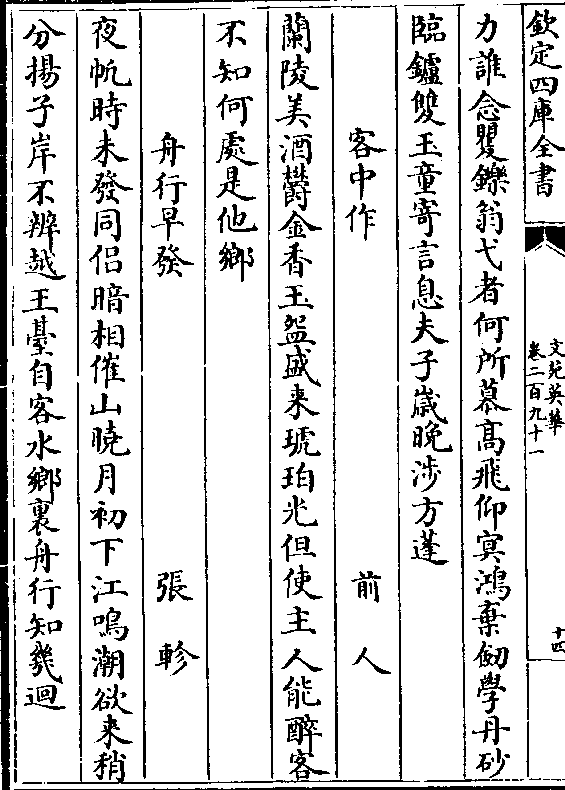 欽定四庫全書
文苑英華
卷二百九十一
十四
力誰念矍鑠翁弋者何所慕高飛仰冥鴻棄劒學丹砂
臨鑪雙玉童寄言息夫子歲晚涉方蓬
客中作 前人
蘭陵美酒欎金香玉盌盛来琥珀光但使主人能醉客
不知何處是他鄉
舟行早發 張軫
夜帆時未發同侣暗相催山曉月初下江鳴潮欲来稍
分揚子岸不辨越王臺自客水鄉裏舟行知幾迴